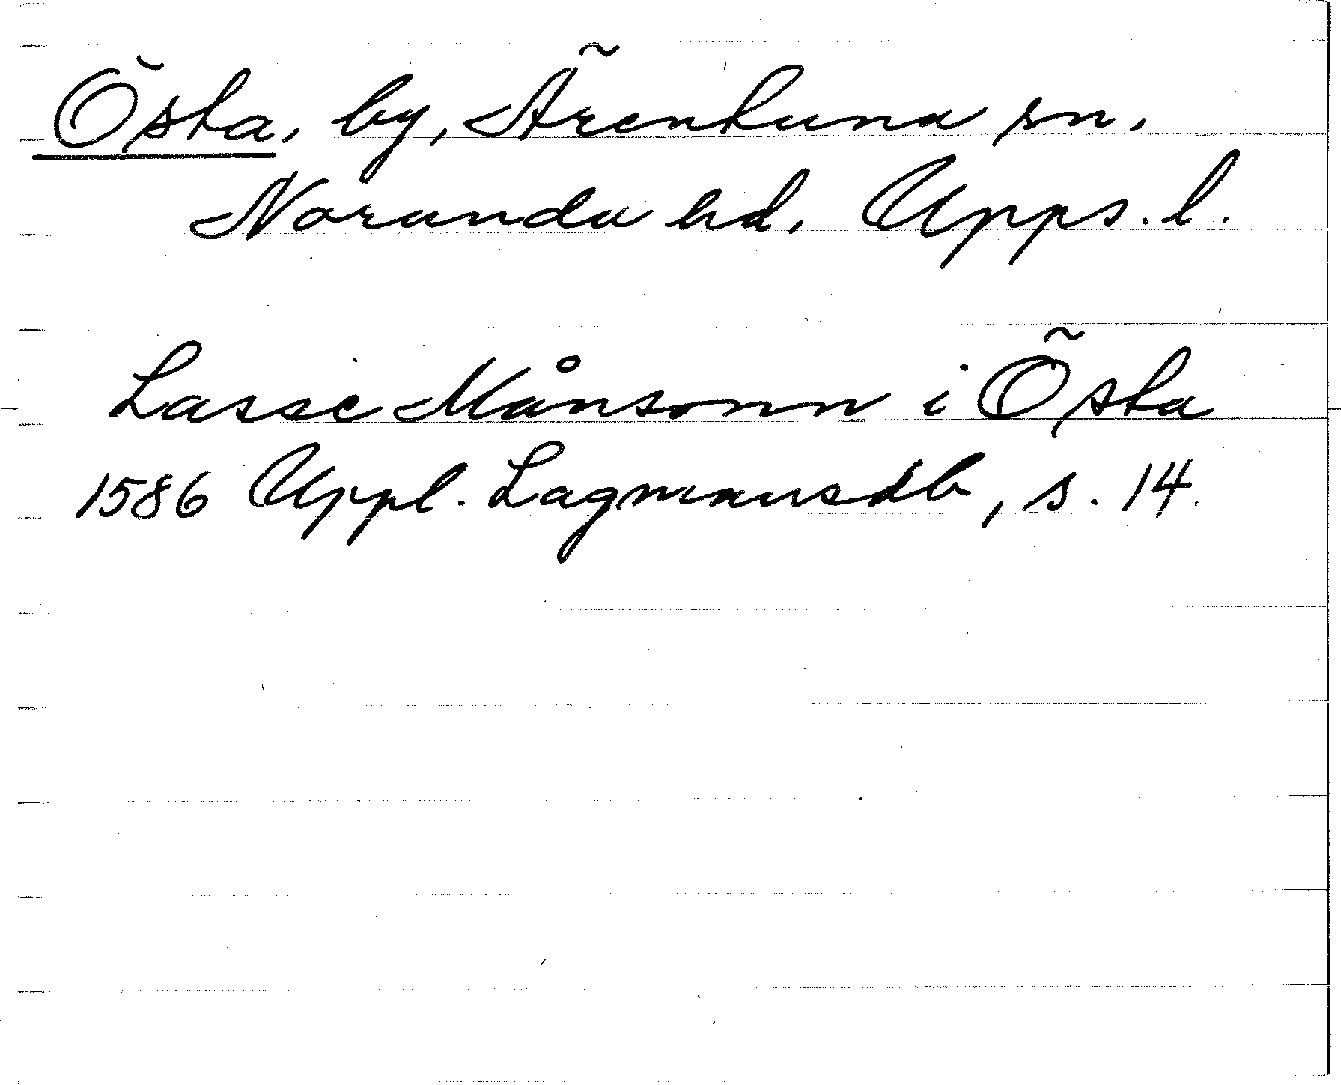 Östa, by, Ärentuna sn.
Norunda hd. Upps. l.
Lasse Månsonn i Östa
1586 Uppl. Lagmansdb, s. 14.